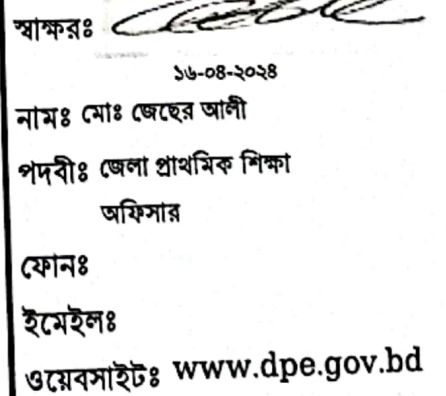 স্বাক্ষরঃ
১৬-০৪-২০২৪
নামঃ মোঃ জেছের আলী
পদবীঃ জেলা প্রাথমিক শিক্ষা
অফিসার
ফোনঃ
ইমেইলঃ
ওয়েবসাইটঃ www.dpe.gov.bd